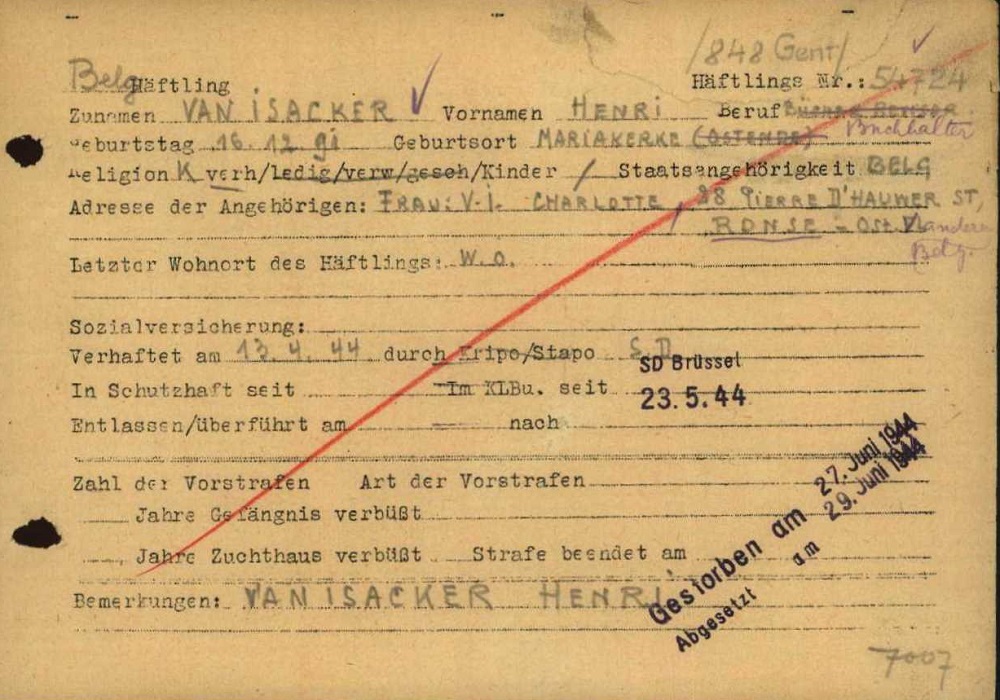 /848 Gent/
Belg Häftling Häftlings Nr.: 54724
Zunamen VAN ISACKER Vornamen HENRI Beruf
Buchhalter
Geburtstag 16. 12. 91 Geburtsort MARIAKERKE (OSTENDE)
Religion K verh/ledig/verw/gesch/Kinder / Staatsangehörigkeit BELG
Adresse der Angehörigen: FRAU: V. I. CHARLOTTE, 28 PIERRE D'HAUWER ST,
RONSE - OST Vlandern
Belg.
Letzter Wohnort des Häftlings: W.O.
Sozialversicherung:
Verhaftet am 13. 4. 44 durch Kripo/Stapo S.D.
SD Brüssel
In Schutzhaft seit Im KLBu. seit 23.5.44
Entlassen/überführt am nach
Zahl der Vorstrafen Art der Vorstrafen
Jahre Gefängnis verbüßt
Jahre Zuchthaus verbüßt Strafe beendet am
Bemerkungen: VAN ISACKER HENRI
Gestorben am 27. Juni 1944
Abgesetzt am 29. Juni 1944
7007